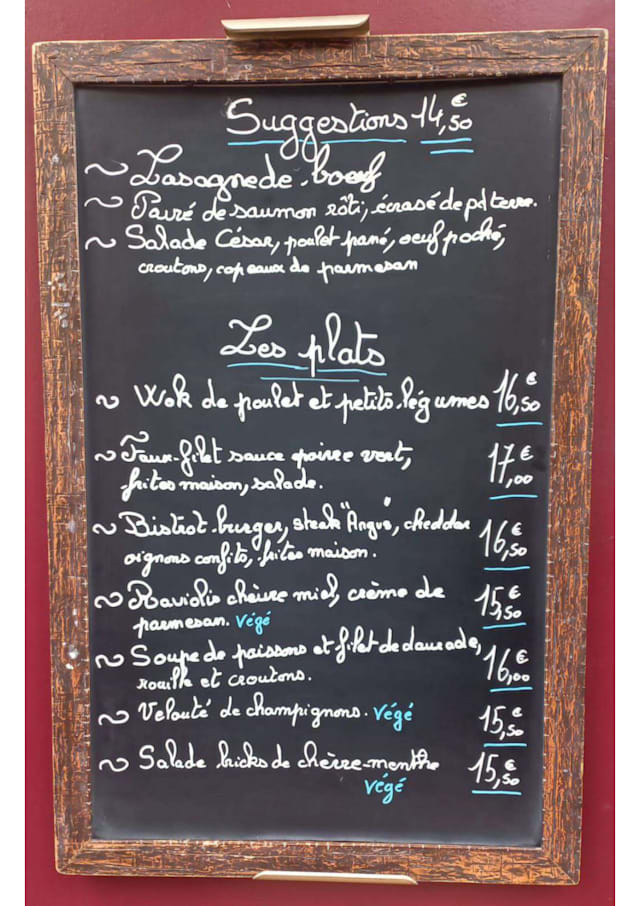 Suggestions 14,50€
~ Lasagne de boeuf
~ Pavé de saumon rôti, écrasé de pd terre.
~ Salade César, poulet pané, oeuf poché,
croutons, copeaux de parmesan
Les plats
~ Wok de poulet et petits légumes 16,50€
~ Faux-filet sauce poivre vert, 17,00€
frites maison, salade.
~ Bistrot burger, steak "Angus", cheddar 16,50€
oignons confits, frites maison.
~ Raviolis chèvre miel, crème de 15,50€
parmesan. Végé
~ Soupe de poissons et filet de daurade, 16,00€
rouille et croutons.
~ Velouté de champignons. Végé 15,50€
~ Salade bricks de chèvre-menthe 15,50€
Végé